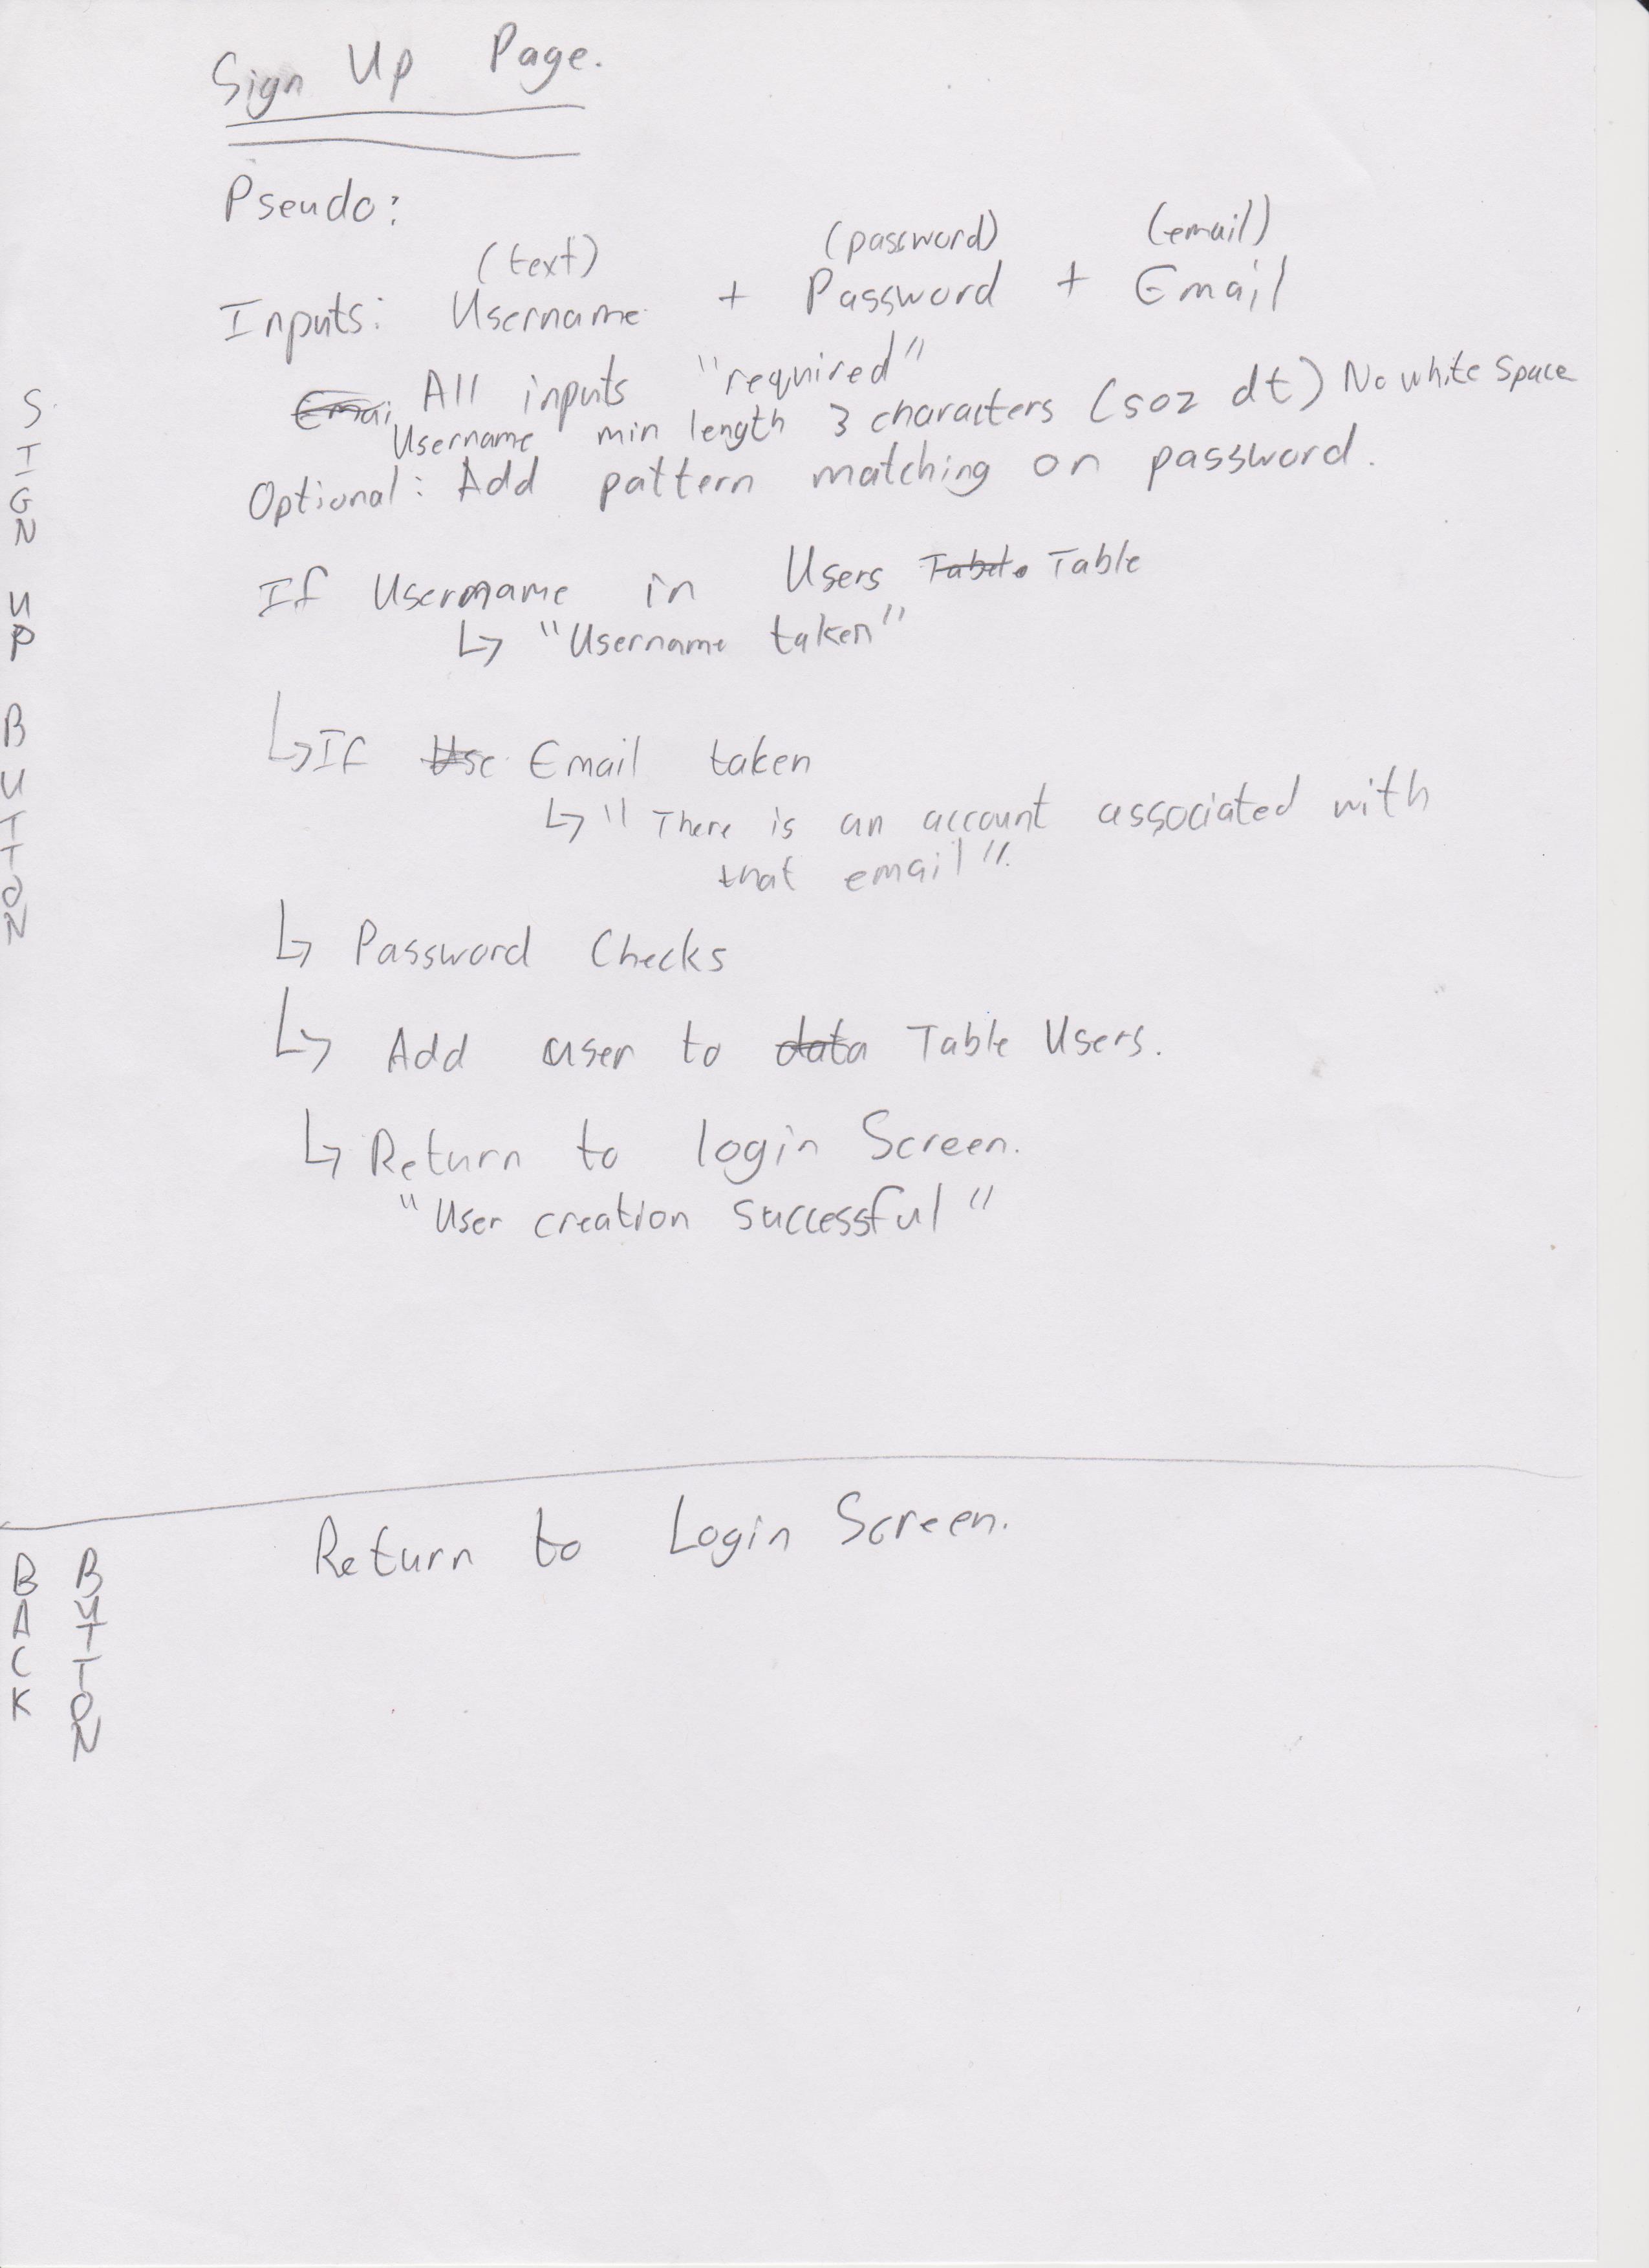 Sign Up Page.
Pseudo:
(text) (password) (email)
Inputs: Username + Password + Email
Emai All inputs "required"
Username min length 3 characters (soz dt) No white Space
Optional: Add pattern matching on password.
If Username in Users Table. Table
↳ "Username taken"
↳ If Use Email taken
↳ "There is an account associated with
that email".
↳ Password Checks
↳ Add user to data Table Users.
↳ Return to login Screen.
"User creation successful"
SIGN UP BUTTON
Return to Login Screen.
BACK BUTTON